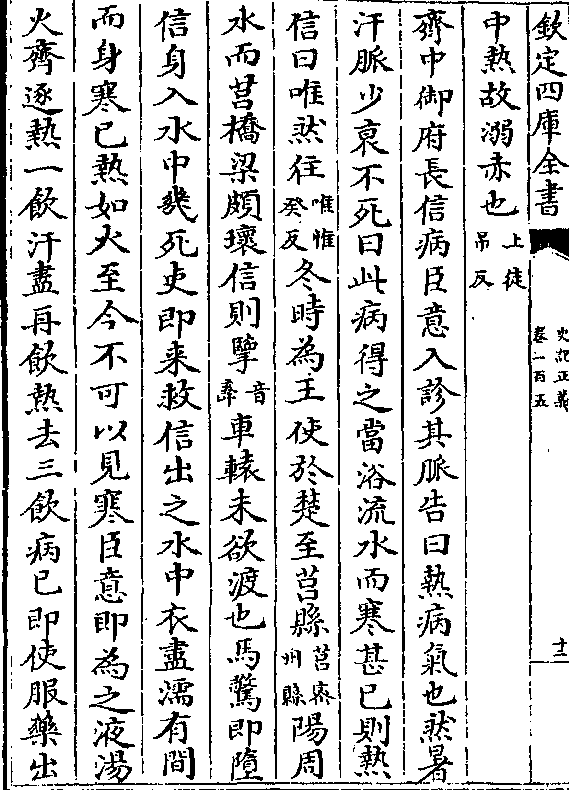 欽定四庫全書
史記正義
卷一百五
十二
中熱故溺赤也上徒吊反
齊中御府長信病臣意入診其脈告曰熱病氣也然暑
汗脈少衰不死曰此病得之當浴流水而寒甚已則熱
信曰唯然往唯惟癸反冬時為王使於楚至莒縣莒密州縣陽周
水而莒橋梁頗壞信則擥音牽車轅未欲渡也馬驚即墮
信身入水中幾死吏即來救信出之水中衣盡濡有間
而身寒已熱如火至今不可以見寒臣意即為之液湯
火齊逐熱一飲汗盡再飲熱去三飲病已即使服藥出